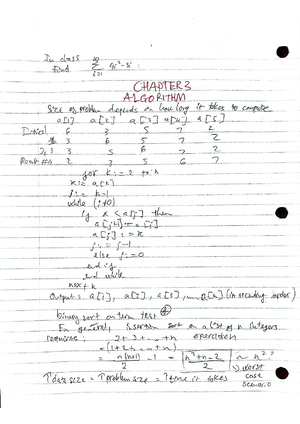 In class
Find 10 Σ i=1 4i² - 3i :
CHAPTER 3
ALGORITHM
Size of problem depends on how long it takes to compute
a[1] a[2] a[3] a[4] a[5]
Initial 6 3 5 7 2
3 6 5 7 2
3 5 6 7 2
Result 2 3 5 6 7
for k := 2 to n
x := a[k]
j := k-1
while (j≠0)
if x < a[j] then
a[j+1] := a[j]
a[j] := x
j := j-1
else j := 0
end if
end while
next k
Output: a[1], a[2], a[3], ... a[n] (in ascending order)
binary sort on term test
In general, insertion sort on a list of n integers
requires : 2+3+...+n operation
= (1+2+...+n)
= n(n+1)/2 - 1 = n²+n-2/2 ~ n²?
↑ data size = ↑ problem size = ↑ time it takes
worst
case
scenario